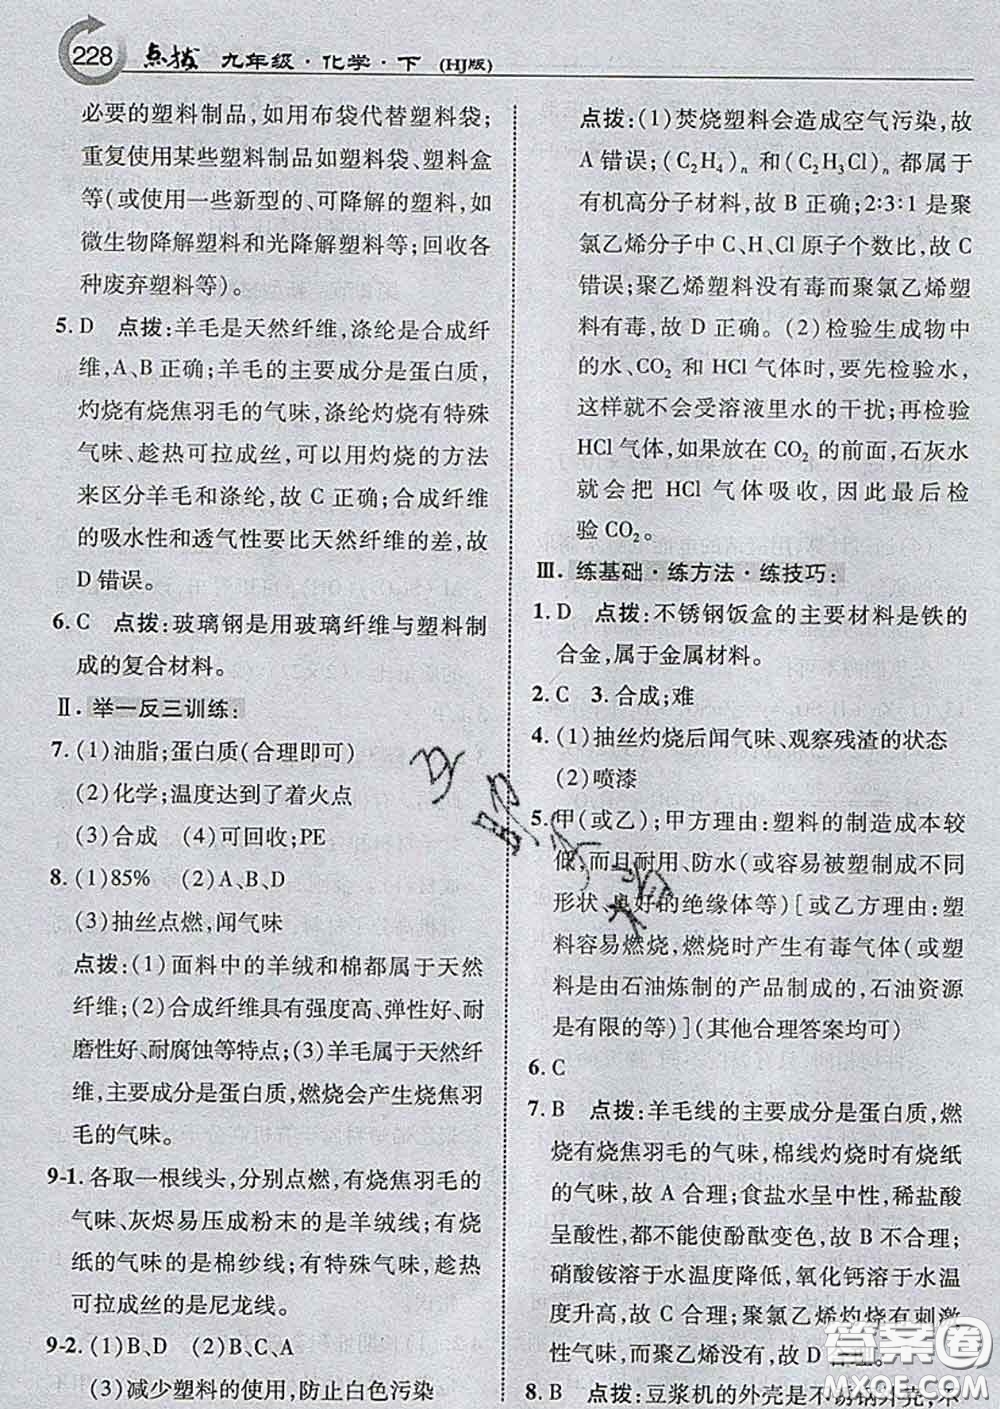 228 点拨 九年级·化学·下 (HJ版)
必要的塑料制品,如用布袋代替塑料袋;
重复使用某些塑料制品如塑料袋、塑料盒
等(或使用一些新型的、可降解的塑料,如
微生物降解塑料和光降解塑料等;回收各
种废弃塑料等)。
5. D 点拨:羊毛是天然纤维,涤纶是合成纤
维,A、B 正确;羊毛的主要成分是蛋白质,
灼烧有烧焦羽毛的气味,涤纶灼烧有特殊
气味、趁热可拉成丝,可以用灼烧的方法
来区分羊毛和涤纶,故 C 正确;合成纤维
的吸水性和透气性要比天然纤维的差,故
D 错误。
6. C 点拨:玻璃钢是用玻璃纤维与塑料制
成的复合材料。
Ⅱ. 举一反三训练:
7. (1)油脂;蛋白质(合理即可)
(2)化学;温度达到了着火点
(3)合成 (4)可回收;PE
8. (1)85% (2)A、B、D
(3)抽丝点燃,闻气味
点拨:(1)面料中的羊绒和棉都属于天然
纤维;(2)合成纤维具有强度高、弹性好、耐
磨性好、耐腐蚀等特点;(3)羊毛属于天然纤
维,主要成分是蛋白质,燃烧会产生烧焦羽
毛的气味。
9-1. 各取一根线头,分别点燃,有烧焦羽毛的
气味、灰烬易压成粉末的是羊绒线;有烧
纸的气味的是棉纱线;有特殊气味,趁热
可拉成丝的是尼龙线。
9-2. (1)B、D (2)B、C、A
(3)减少塑料的使用,防止白色污染
点拨:(1)焚烧塑料会造成空气污染,故
A 错误;(C₂H₄)ₙ 和(C₂H₃Cl)ₙ 都属于
有机高分子材料,故 B 正确;2∶3∶1 是聚
氯乙烯分子中 C、H、Cl 原子个数比,故 C
错误;聚乙烯塑料没有毒而聚氯乙烯塑
料有毒,故 D 正确。(2)检验生成物中
的水、CO₂ 和 HCl 气体时,要先检验水,
这样就不会受溶液里水的干扰;再检验
HCl 气体,如果放在 CO₂ 的前面,石灰水
就会把 HCl 气体吸收,因此最后检
验 CO₂。
Ⅲ. 练基础·练方法·练技巧:
1. D 点拨:不锈钢饭盒的主要材料是铁的
合金,属于金属材料。
2. C 3. 合成;难
4. (1)抽丝灼烧后闻气味、观察残渣的状态
(2)喷漆
5. 甲(或乙);甲方理由:塑料的制造成本较
低,而且耐用、防水(或容易被塑制成不同
形状、良好的绝缘体等)[或乙方理由:塑
料容易燃烧,燃烧时产生有毒气体(或塑
料是由石油炼制的产品制成的,石油资源
是有限的等)](其他合理答案均可)
6. C
7. B 点拨:羊毛线的主要成分是蛋白质,燃
烧有烧焦羽毛的气味,棉线灼烧时有烧纸
的气味,故 A 合理;食盐水呈中性,稀盐酸
呈酸性,都不能使酚酞变色,故 B 不合理;
硝酸铵溶于水温度降低,氧化钙溶于水温
度升高,故 C 合理;聚氯乙烯灼烧有刺激
性气味,而聚乙烯没有,故 D 合理。
8. B 点拨:豆浆机的外壳是不锈钢外壳,不
答案圈
MXQE.COM